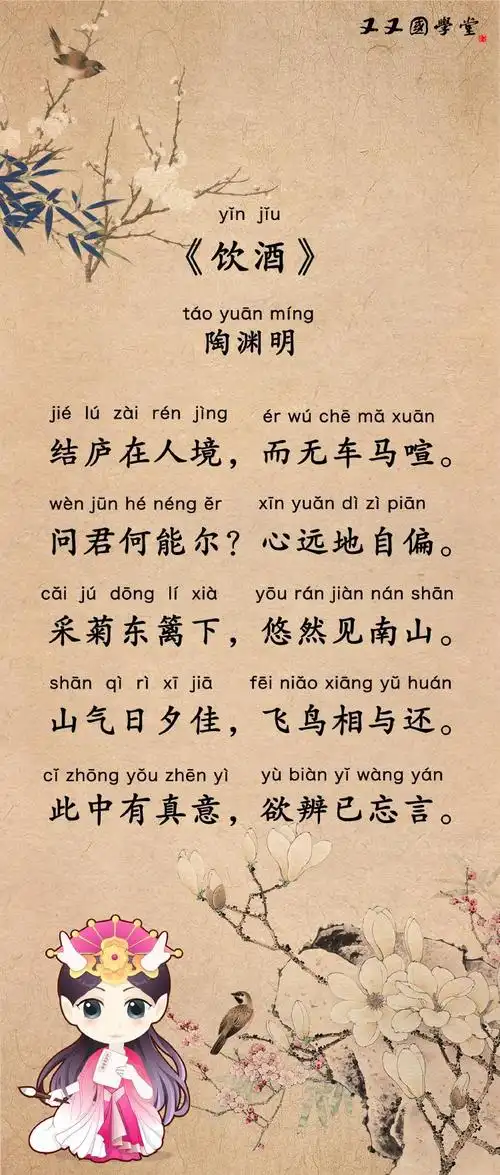 又又國學堂
yǐn jǐu
《饮酒》
táo yuān míng
陶渊明
jié lú zài rén jìng ér wú chē mǎ xuān
结庐在人境，而无车马喧。
wèn jūn hé néng ěr xīn yuǎn dì zì piān
问君何能尔？心远地自偏。
cǎi jú dōng lí xià yōu rán jiàn nán shān
采菊东篱下，悠然见南山。
shān qì rì xī jiā fēi niǎo xiāng yǔ huán
山气日夕佳，飞鸟相与还。
cǐ zhōng yǒu zhēn yì yù biàn yǐ wàng yán
此中有真意，欲辨已忘言。